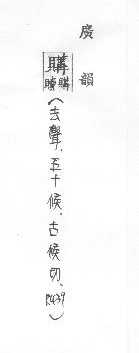 廣韻
購
購購
(去聲，五十候，古候切，P.439)